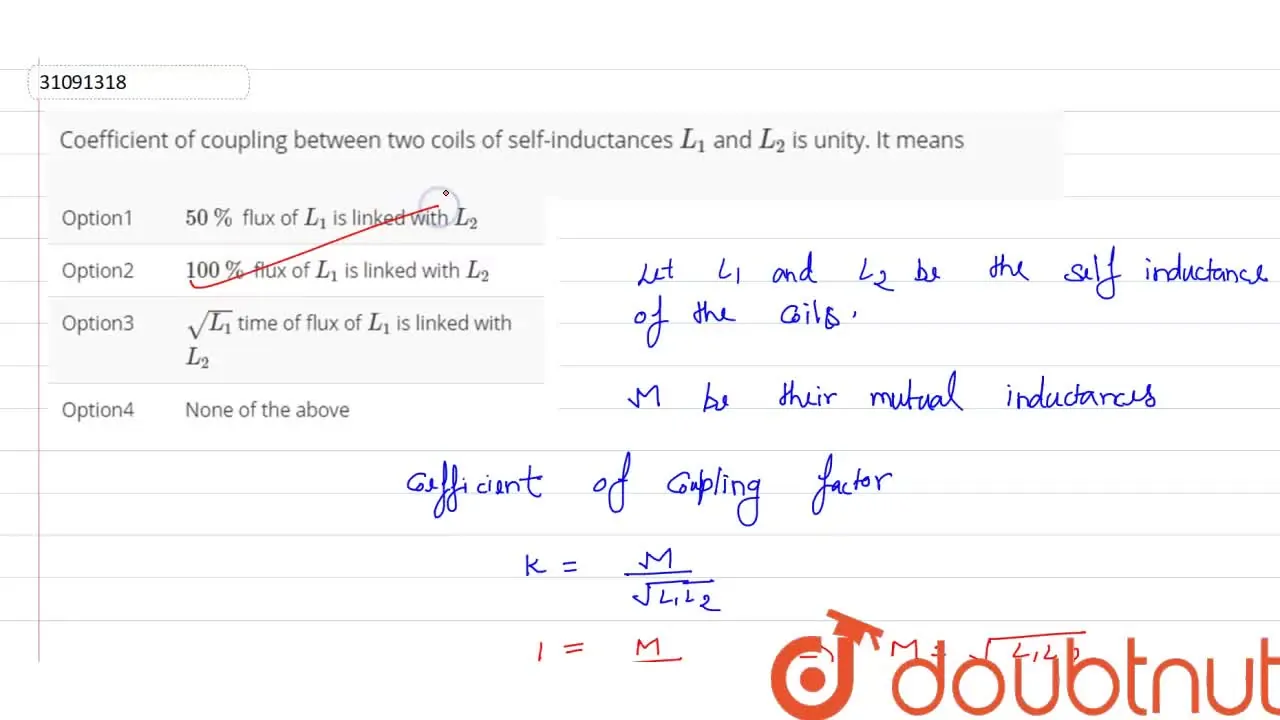 31091318
Coefficient of coupling between two coils of self-inductances L₁ and L₂ is unity. It means
Option1 50 % flux of L₁ is linked with L₂
Option2 100 % flux of L₁ is linked with L₂
Option3 √L₁ time of flux of L₁ is linked with
L₂
Option4 None of the above
Let L₁ and L₂ be the self inductance
of the coils.
M be their mutual inductances
Coefficient of Coupling factor
K = M / √L₁L₂
1 = M
M = √L₁L₂
doubtnut